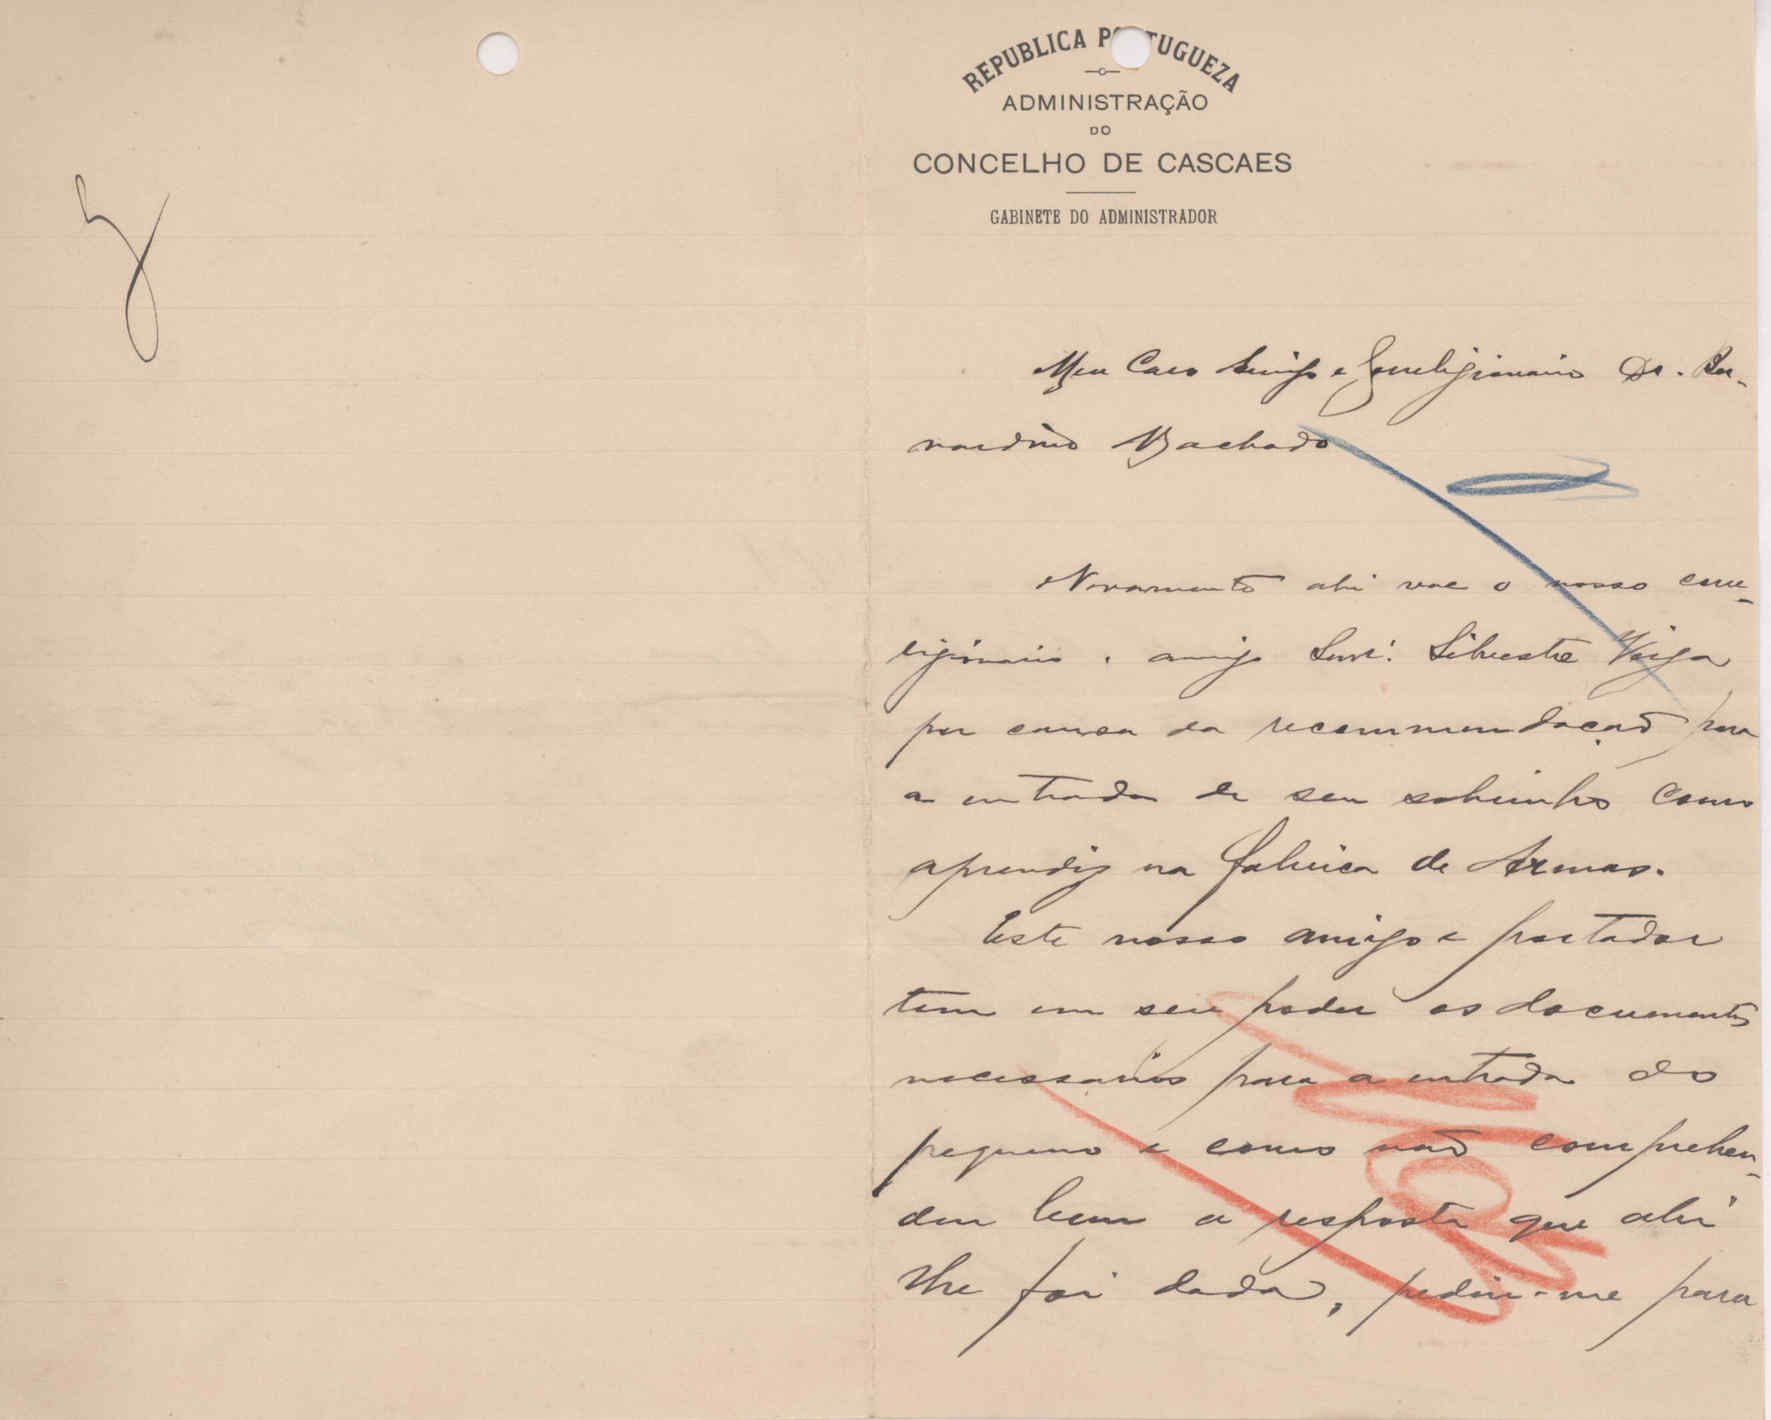 REPUBLICA PORTUGUEZA
ADMINISTRAÇÃO
DO
CONCELHO DE CASCAES
GABINETE DO ADMINISTRADOR
Meu Caro Amigo e Correligionario Dr. Ber-
nardino Machado
Novamente ahi vae o nosso corre-
ligionario e amigo Silvestre Veiga
por causa da recommendação para
a entrada de seu sobrinho como
aprendiz na fabrica de Armas.
Este nosso amigo e portador
tem em seu poder os documentos
necessarios para a entrada do
pequeno e como não comprehen-
deu bem a resposta que ahi
lhe foi dada, pediu-me para